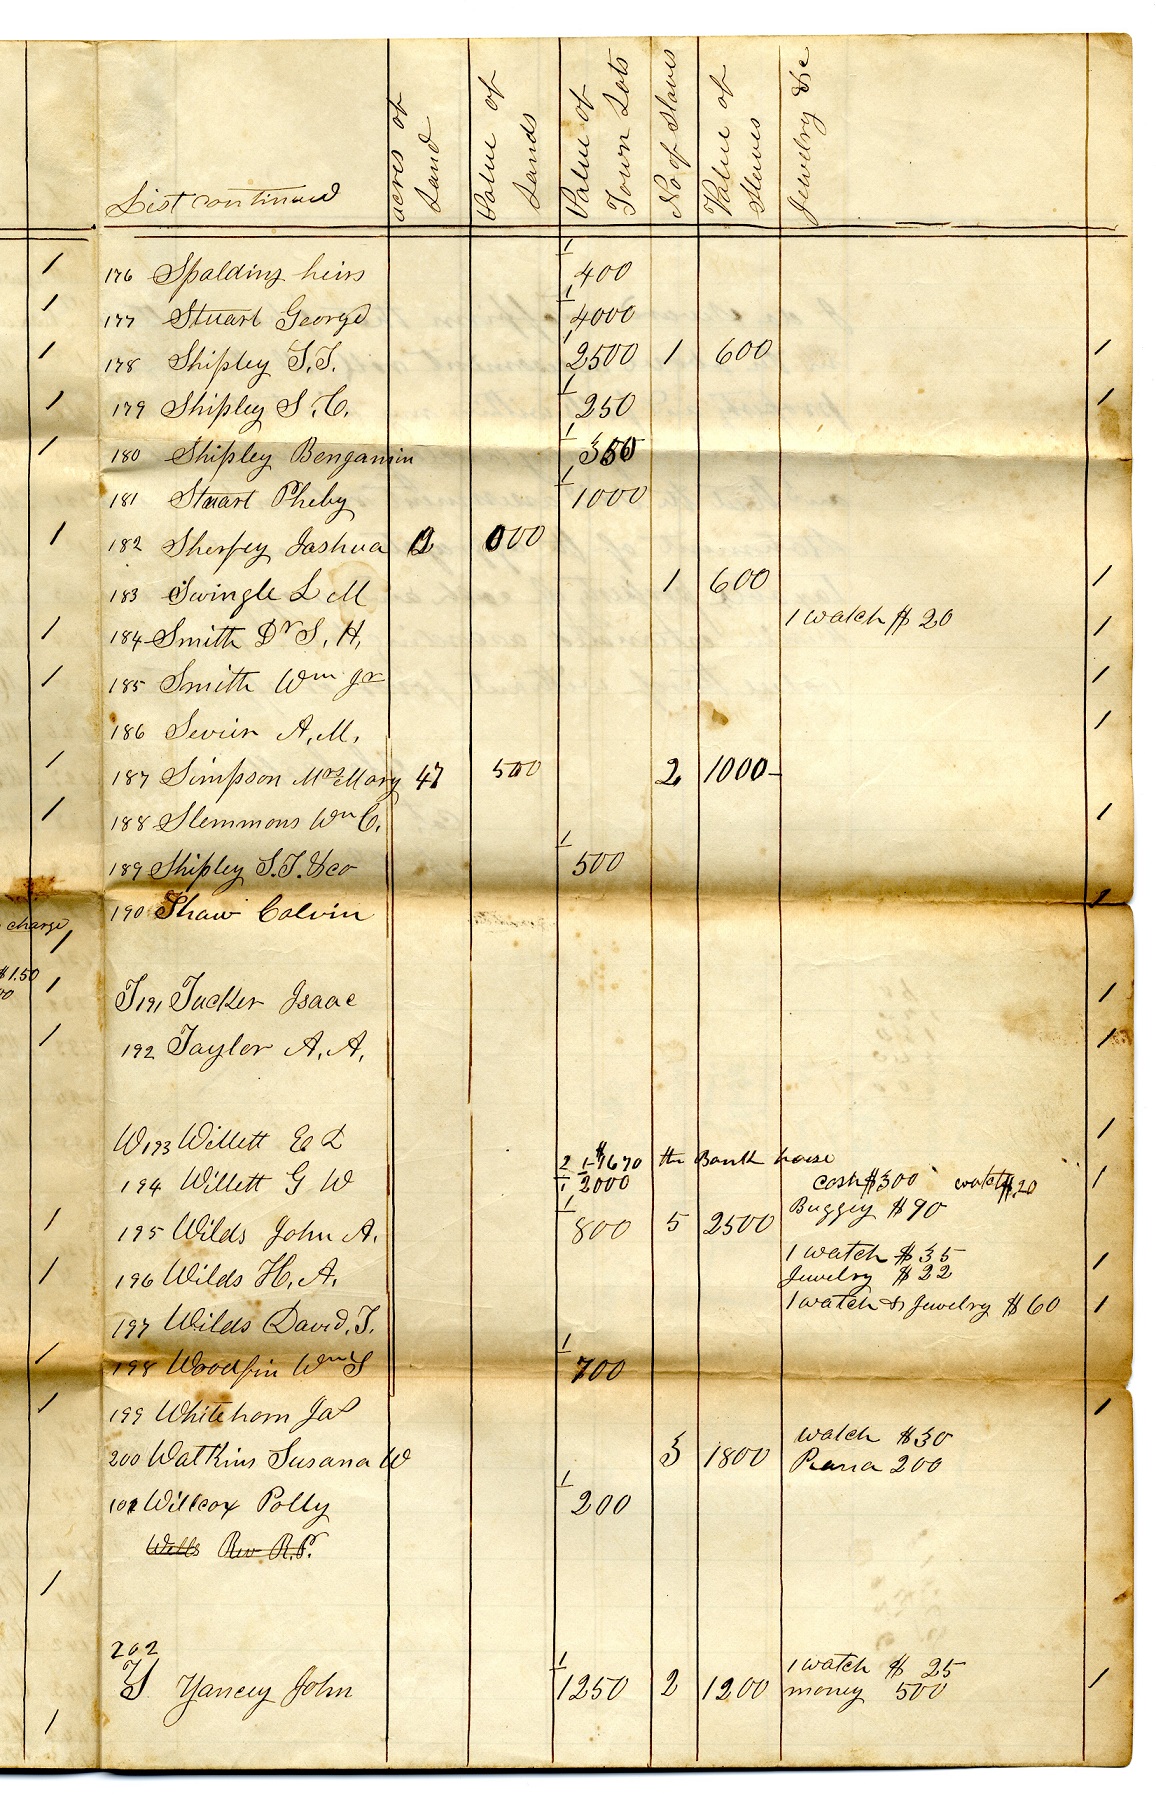 List continued acres of Land Value of Lands Value of Town Lots No of Slaves Value of Slaves Jewelry &c
176 Spalding heirs 1 400
177 Stuart George 1 4000
178 Shipley T. T. 1 2500 1 600 1
179 Shipley S. C. 1 250 1
180 Shipley Bengamin 1
181 Stuart Pheby 1 1000
182 Sherfey Jashua
183 Swingle L M 1 600 1
184 Smith Dr S. H. 1 watch $ 20 1
185 Smith Wm Jr 1
186 Sevier A. M. 1
187 Simpson Mrs Mary 47 500 2 1000-
188 Slemmons Wm C. 1
189 Shipley S. T. & co 1 500
190 Shaw Calvin 1
charge
$1.50
T 191 Tucker Isaac 1
192 Taylor A. A. 1
W 193 Willett E L 1
2 1 $7670 the Bank house
194 Willett G W 1 2000 cash $300 watch $20 1
Buggey $90
195 Wilds John A. 1 800 5 2500
1 watch $35
196 Wilds H. A. Jewelry $22 1
1 watch & Jewelry $60 1
197 Wilds David. T.
198 Woodfin Wm S 1 700
199 Whitehorn Jas 1
watch $30
200 Watkins Susana W 3 1800 Piana 200
101 Willcox Polly 1 200
Wells Rev R. P.
202
Y Yancey John 1 1250 2 1200 1 watch $ 25 1
money 500